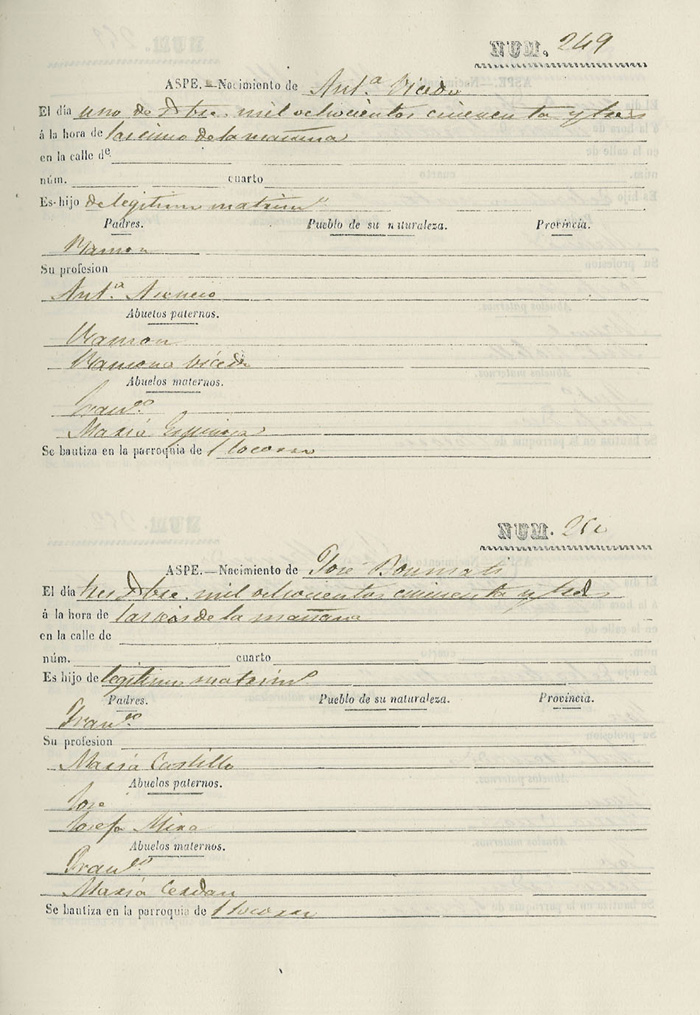 NUM. 249
ASPE.—Nacimiento de Ant.ª Vicedo
El día uno de 8bre. mil ochocientos cincuenta y tres
á la hora de las cinco de la mañana
en la calle de
núm. cuarto
Es hijo de legitimo matrim.º
Padres. Pueblo de su naturaleza. Provincia.
Ramon
Su profesion
Ant.ª
Abuelos paternos.
Ramon
Ramona Vicedo
Abuelos maternos.
Fran.co
Maria
Se bautiza en la parroquia de
NUM. 250
ASPE.—Nacimiento de Jose Bonmati
El día tres 8bre. mil ochocientos cincuenta y tres
á la hora de las seis de la mañana
en la calle de
núm. cuarto
Es hijo de legitimo matrim.º
Padres. Pueblo de su naturaleza. Provincia.
Fran.co
Su profesion
Maria Castillo
Abuelos paternos.
Jose
Josefa Mira
Abuelos maternos.
Fran.co
Maria Cerdan
Se bautiza en la parroquia de